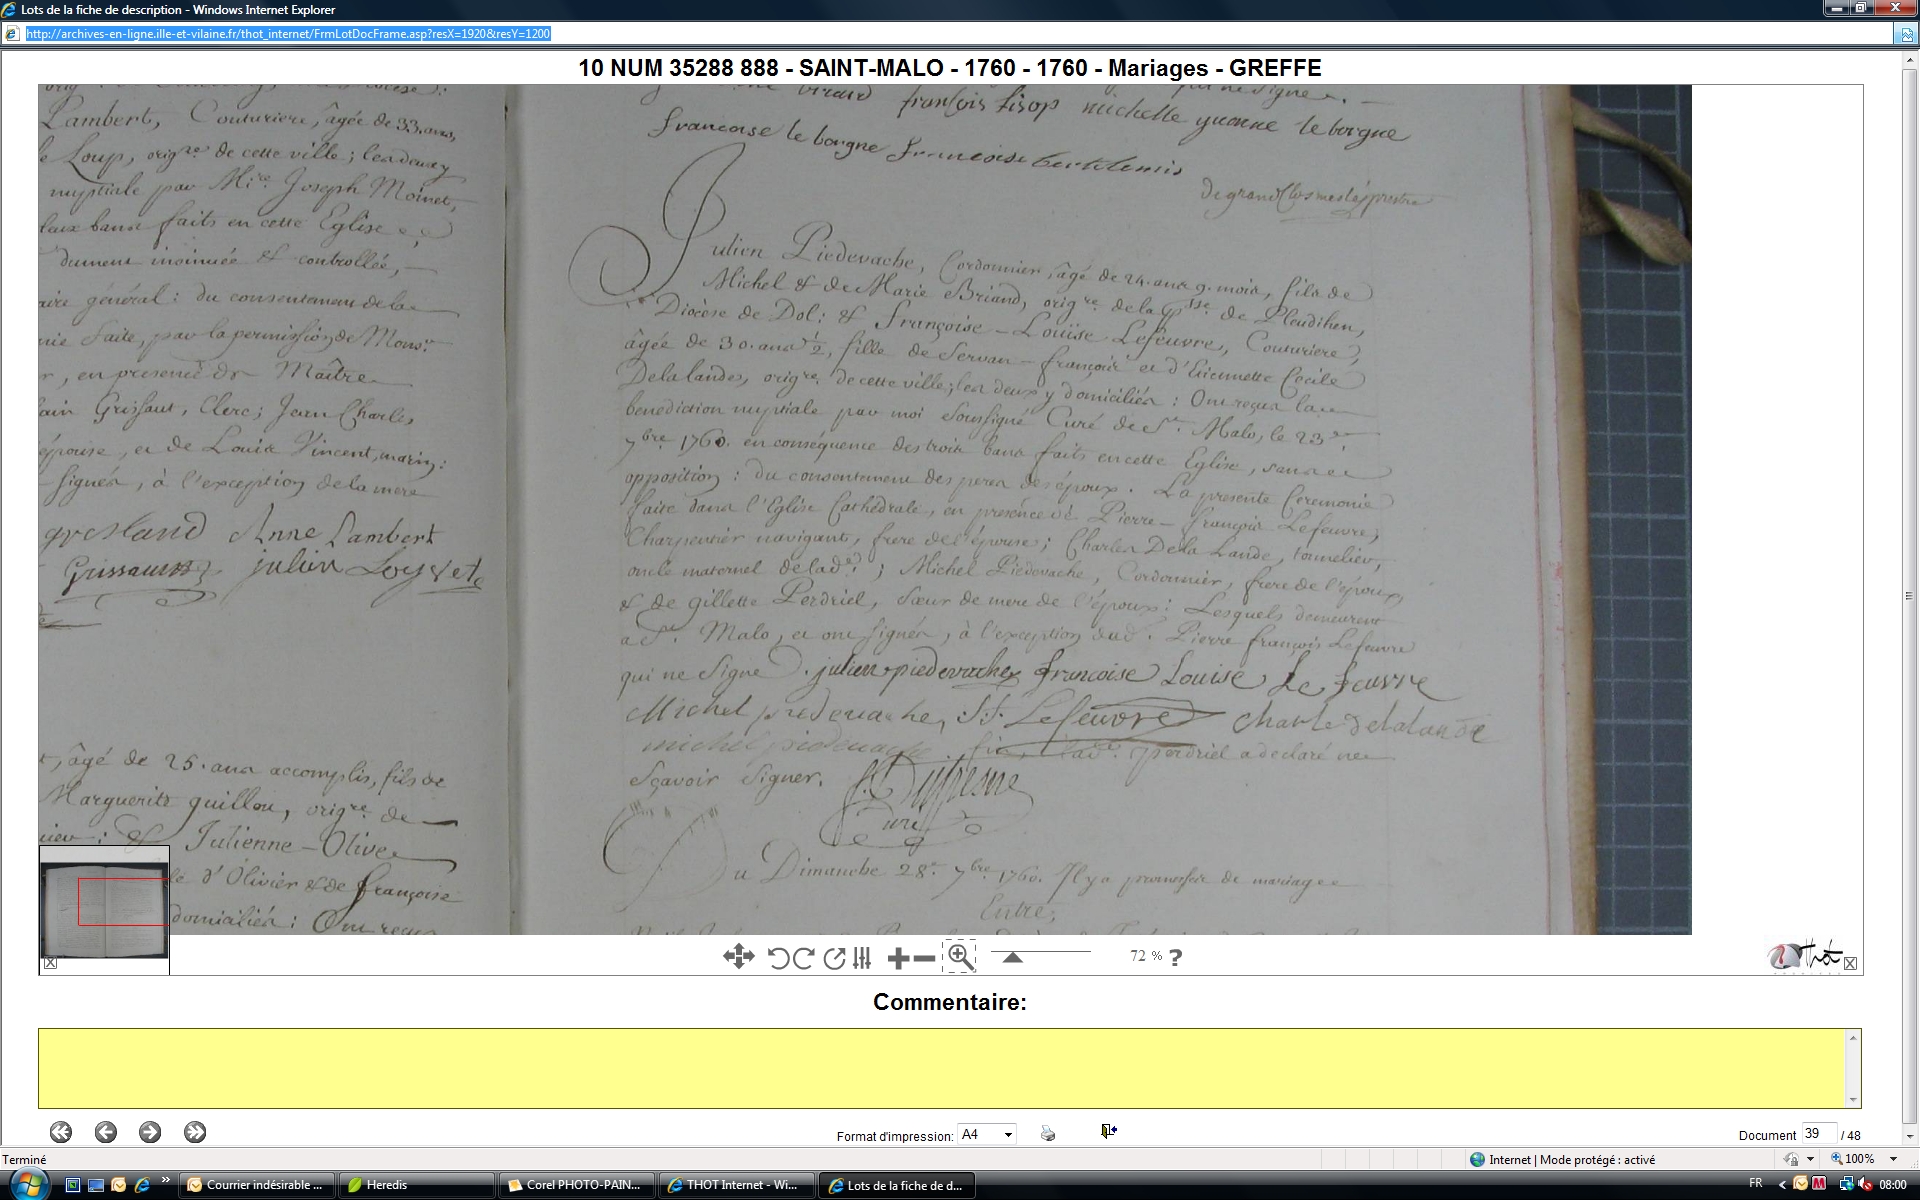 Lots de la fiche de description - Windows Internet Explorer
http://archives-en-ligne.ille-et-vilaine.fr/thot_internet/FrmLotDocFrame.asp?resX=1920&resY=1200
10 NUM 35288 888 - SAINT-MALO - 1760 - 1760 - Mariages - GREFFE
Lambert, Couturiere, âgée de 33. ans,
le Loup, orig.re de cette ville; les deux y
nuptiale par M.re Joseph Moinet,
bans faits en cette Eglise
dument insinuée & controllée,
aire général: du consentement de la
nie faite, par la permission de Mons.r
, en presence de Maître
ain Grissaut, Clerc; Jean Charles
épouse, et de Louis Vincent, marin:
signés, à l'exception de la mere
Anne Lambert
julien
t, âgé de 25. ans accomplis, fils de
Marguerite guillou, orig.re de
& Julienne-Olive
d'Olivier & de françoise
domiciliés: Ont reçu
françois fisop michelle yvonne le borgne
francoise le borgne francoise
Julien Piedevache, Cordonnier, âgé de 24. ans 9. mois, fils de
Michel & de Marie Briand, orig.re de la p.sse de Pleudihen,
Diocèse de Dol: & Françoise-Louise Lefeuvre, Couturiere,
âgée de 30. ans 1/2, fille de Servan-françois et d'Etiennette Cecile
Delalandes, orig.re de cette ville; les deux y domiciliés: Ont reçu la
benediction nuptiale par moi soussigné Curé de S.t Malo, le 23.
7bre 1760. en conséquence des trois bans faits en cette Eglise, sans
opposition: du consentement des peres des époux. La presente Ceremonie
faite dans l'Eglise Cathédrale, en presence de Pierre-françois Lefeuvre,
Charpentier navigant, frere de l'épouse; Charles De la Lande, tonnelier,
oncle maternel de lad.e; Michel Piedevache, Cordonnier, frere de l'époux,
& de gillette Perdriel, sœur de mere de l'époux: Lesquels demeurent
a S.t Malo, et ont signés, à l'exception dud. Pierre françois Lefeuvre
qui ne signe. julien piedevache francoise Louise Le feuvre
Michel piedevache, S.f. Lefeuvre charle delalande
michel piedevache lad.e perdriel a declaré ne
sçavoir signer. Dufresne
Curé
Du Dimanche 28. 7bre 1760. Il y a promesse de mariage
Entre,
72 % ?
Thot
Commentaire:
Format d'impression: A4
Document 39 / 48
Terminé
Internet | Mode protégé : activé
100%
Courrier indésirable ...
Heredis
Corel PHOTO-PAIN...
THOT Internet - Wi...
Lots de la fiche de d...
FR
08:00